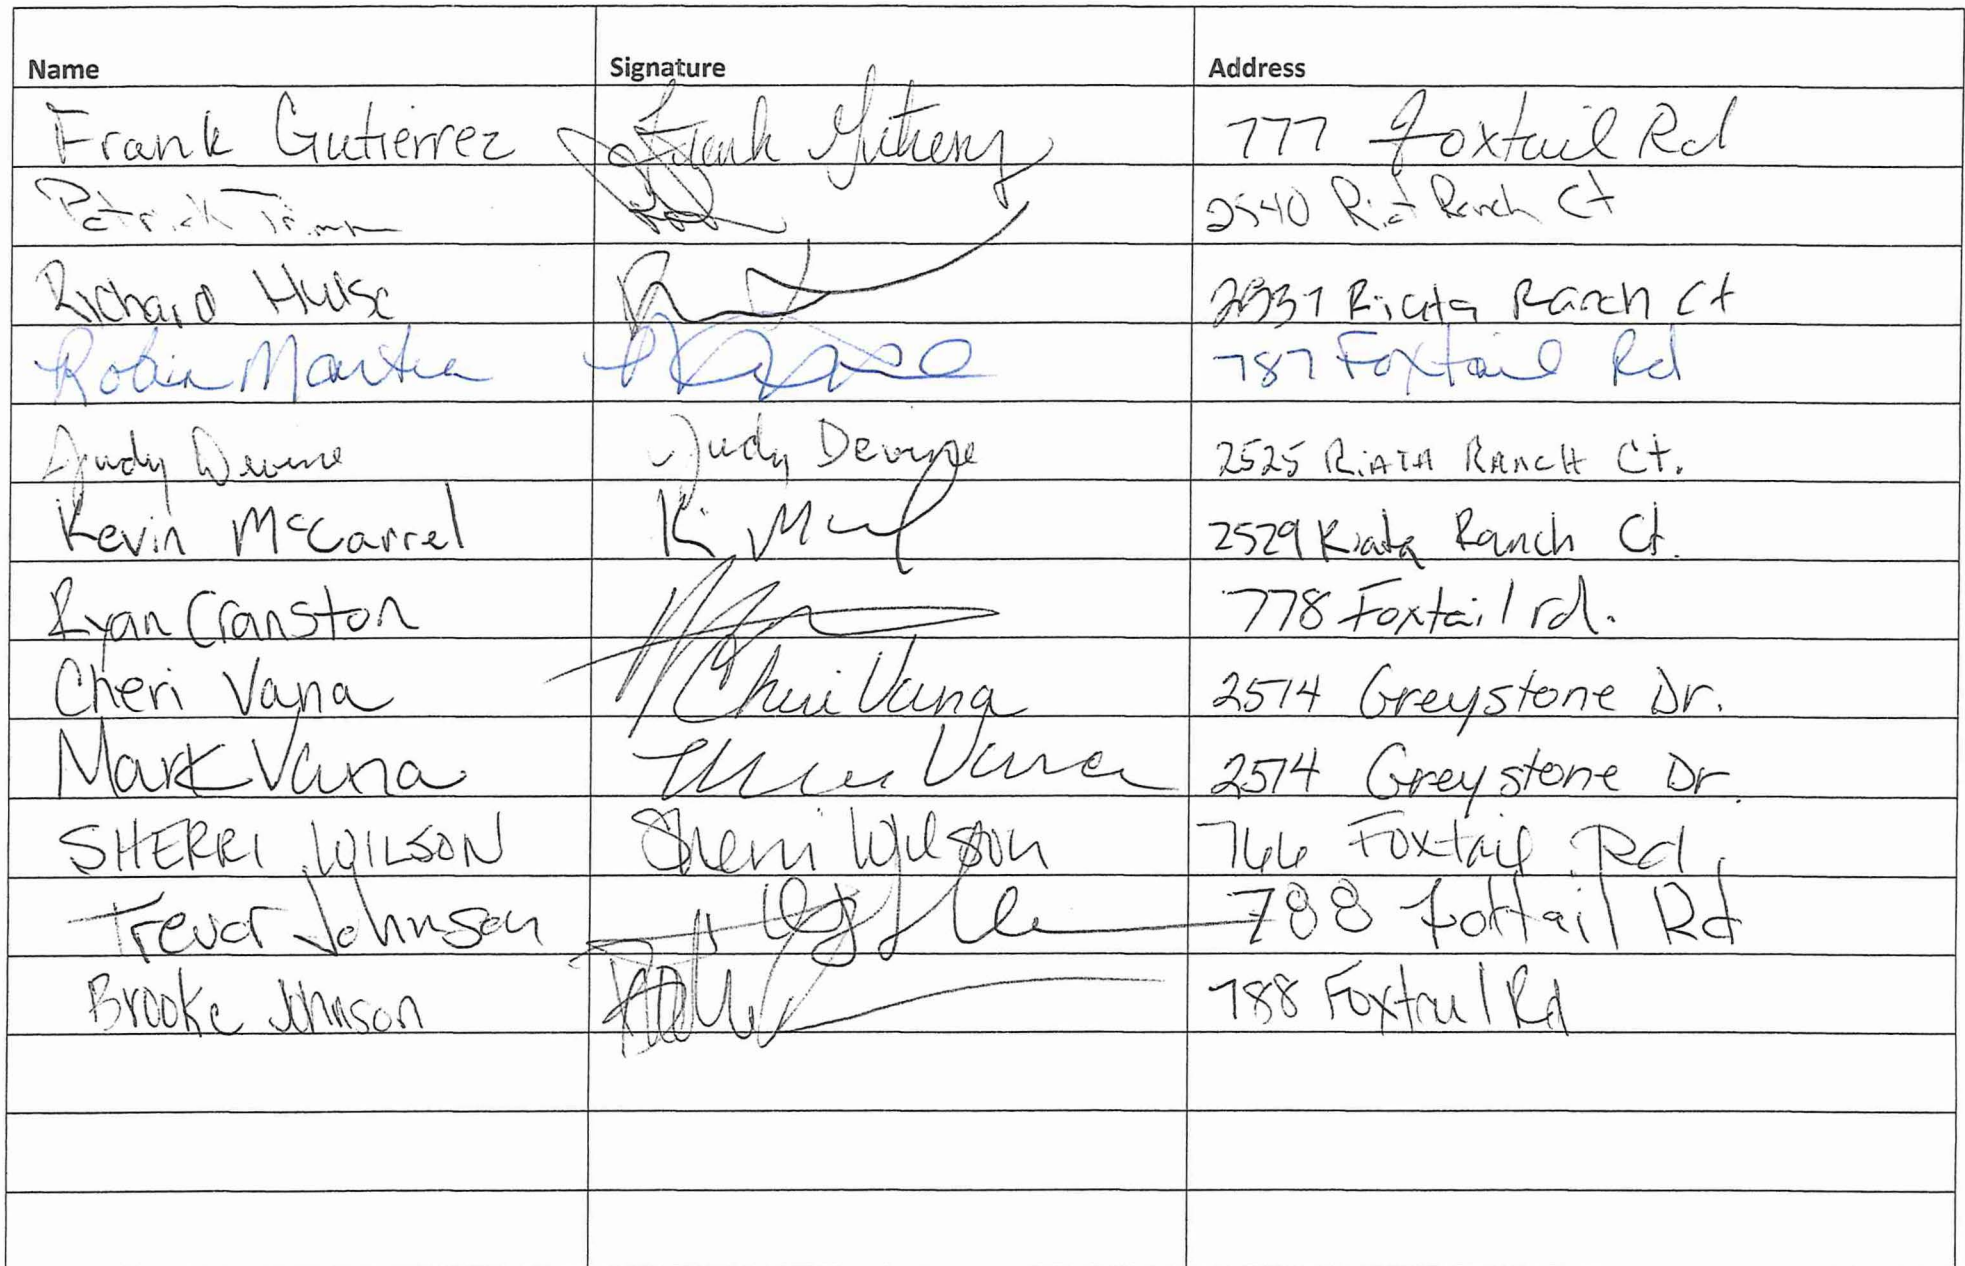 Name Signature Address
Frank Gutierrez Frank Gutierrez 777 Foxtail Rd
Patrick 2540 Ranch Ct
Richard Hulse Ranch Ct
Robin Martin 787 Foxtail Rd
Judy Devine Judy Devine 2525 RiATA RANCH Ct.
Kevin McCarrel 2529 Riata Ranch Ct.
Ryan Cranston 778 Foxtail rd.
Cheri Vana Cheri Vana 2574 Greystone Dr.
Mark Vana Vana 2574 Greystone Dr.
SHERRI WILSON Sherri Wilson 766 Foxtail Rd.
Trevor Johnson 788 Foxtail Rd
Brooke Johnson 788 Foxtail Rd